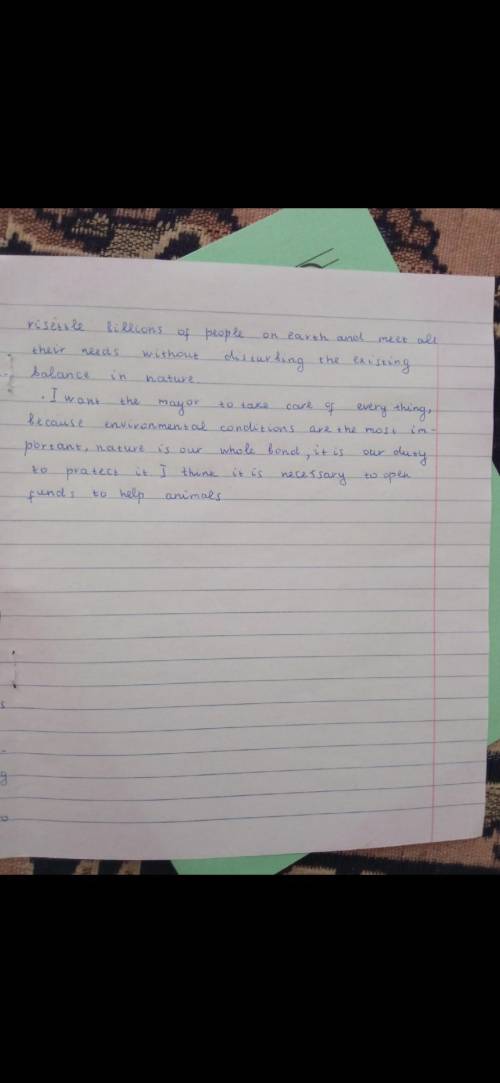 risettle billions of people on earth and meet all
their needs without disturding the existing
balance in nature.
. I want the mayor to take care of every thing,
because environmental conditions are the most im-
portant, nature is our whole bond, it is our duty
to pratect it. I think it is necessary to open
funds to help animals
s
-
g